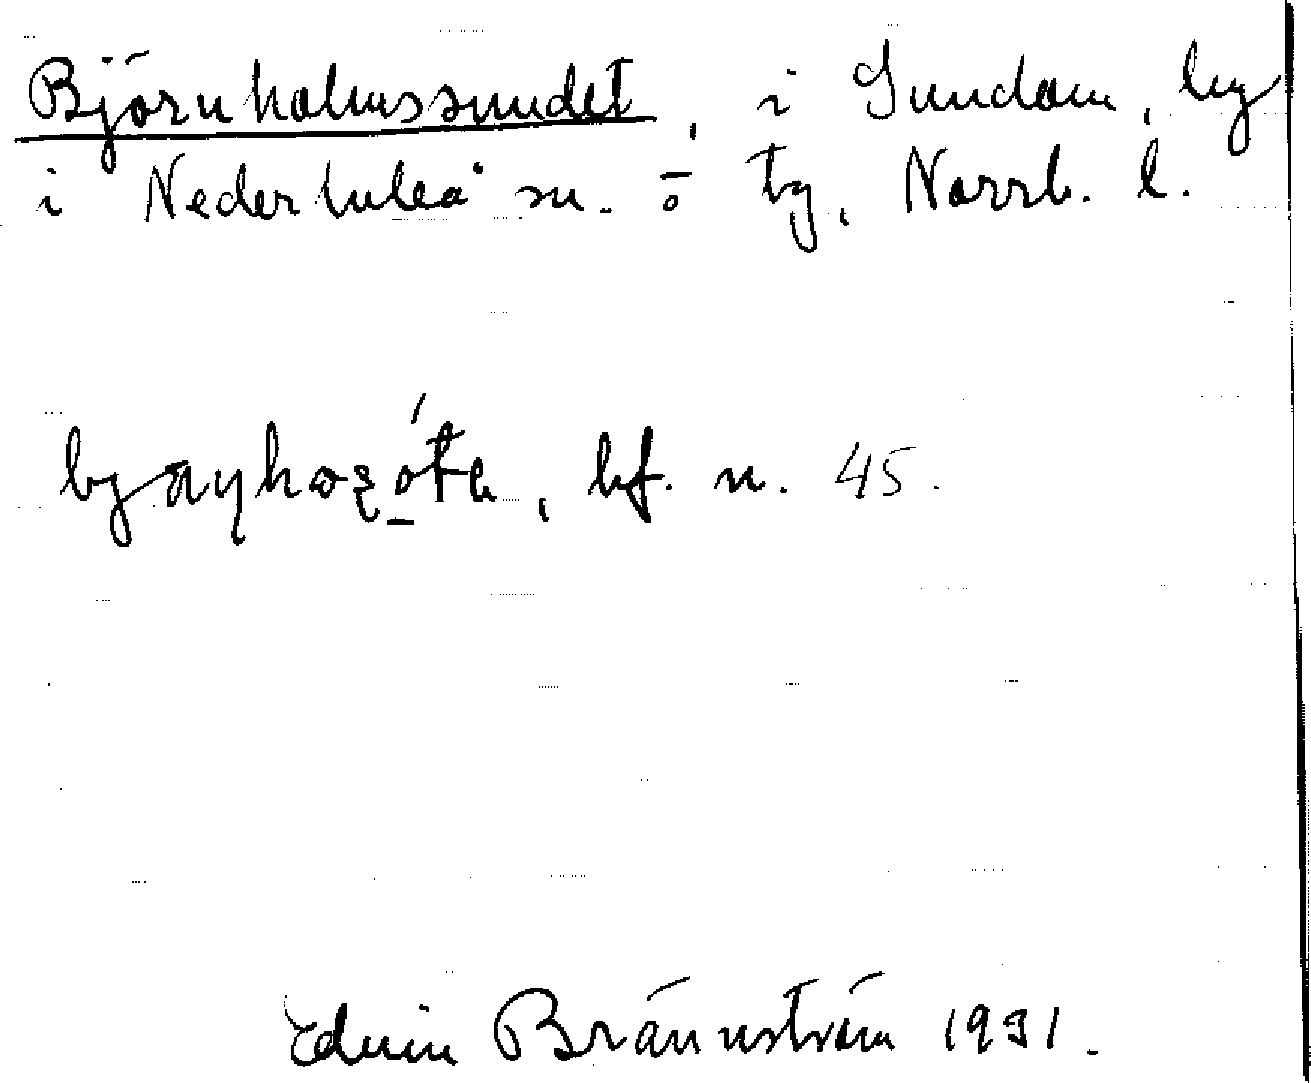 Björnholmssundet, i Sundom, by
i Nederluleå sn. o tg, Norrb. l.
bf. n. 45.
Edvin Brännström 1931.